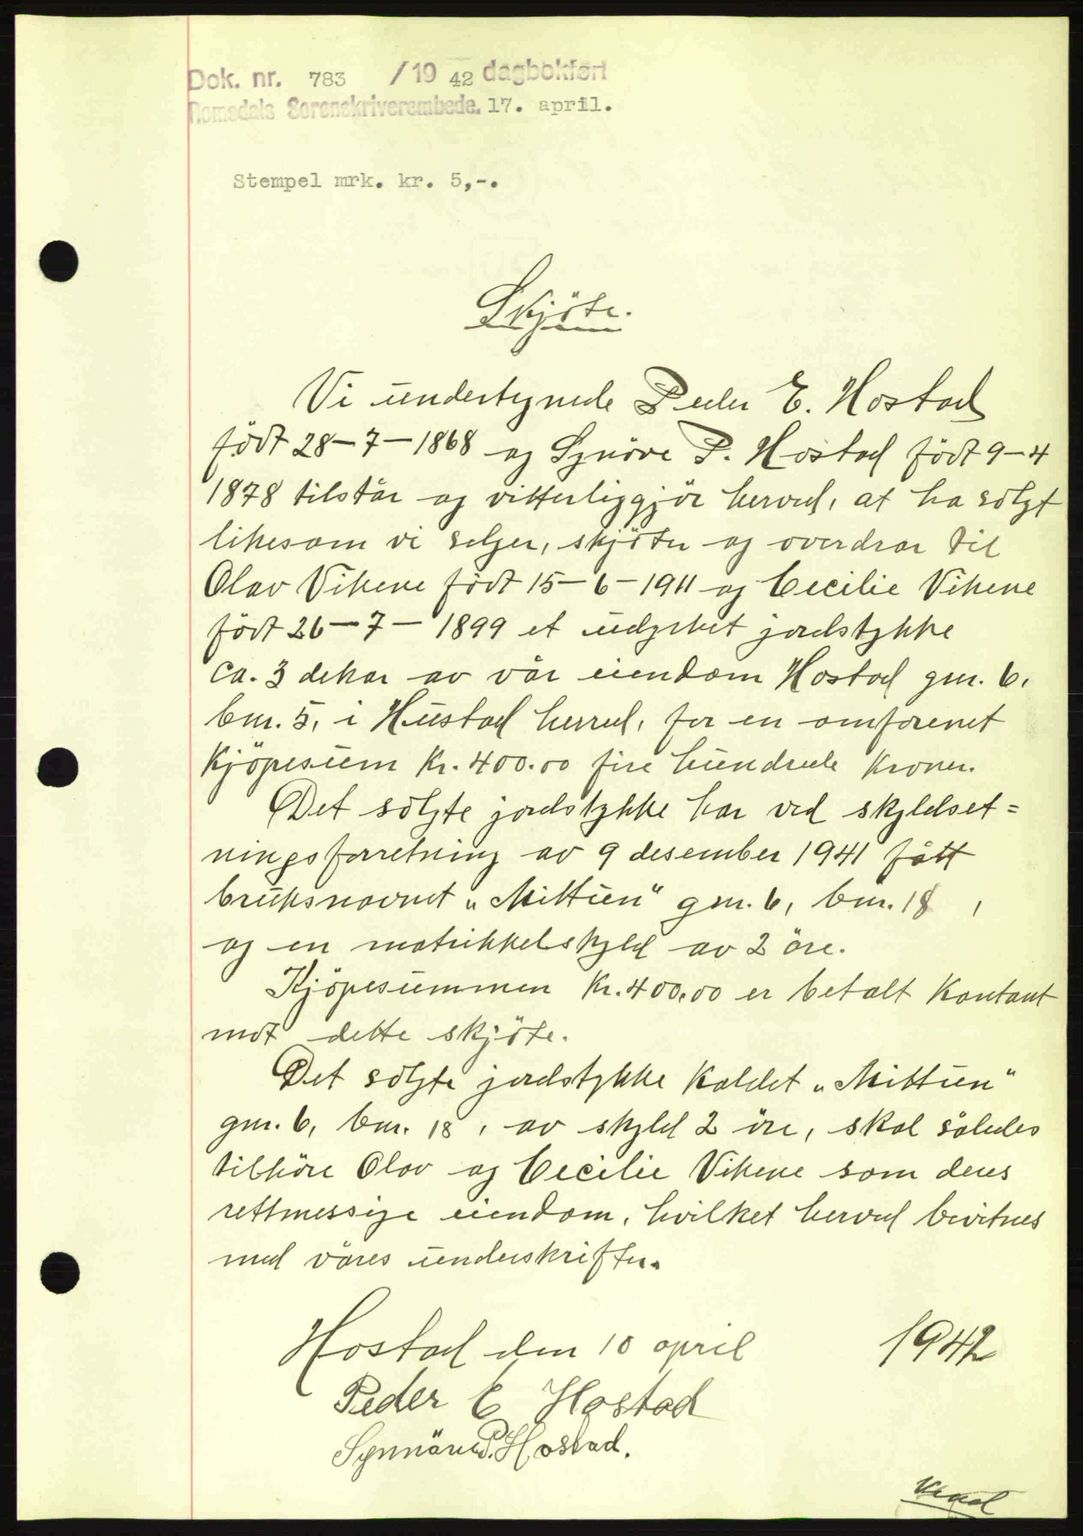 Dok. nr. 783 /19 42 dagbokført
Romsdals Sorenskriverembede. 17. april.
Stempel mrk. kr. 5,-.
Skjöte.
Vi undertegnede Peder E. Hostad
född 28-7-1868 og Synöve P. Hostad född 9-4
1878 tilstår og vitterliggjör herved, at ha solgt
likesom vi selger, skjöter og overdrar til
Olav Vikene född 15-6-1911 og Cecilie Vikene
född 26-7-1899 et udyrket jordstykke
ca. 3 dekar av vår eiendom Hostad gnr. 6,
bnr. 5, i Hustad herred, for en omforenet
Kjöpesum Kr. 400.00 fire hundrede Kroner.
Det solgte jordstykke har ved skyldset=
ningsforretning av 9 desember 1941 fått
bruksnavnet „Mittun" gnr. 6, bnr. 18 ,
og en matrikkelskyld av 2 öre.
Kjöpesummen Kr. 400,00 er betalt Kontant
mot dette skjöte.
Det solgte jordstykke Kaldet „Mittun"
gnr. 6, bnr. 18 , av skyld 2 öre, skal således
tilhöre Olav og Cecilie Vikene som deres
rettmessige eiendom, hvilket herved bevitnes
med våres underskrifter.
Hostad den 10 april 1942
Peder E Hostad
Synnöve P. Hostad.